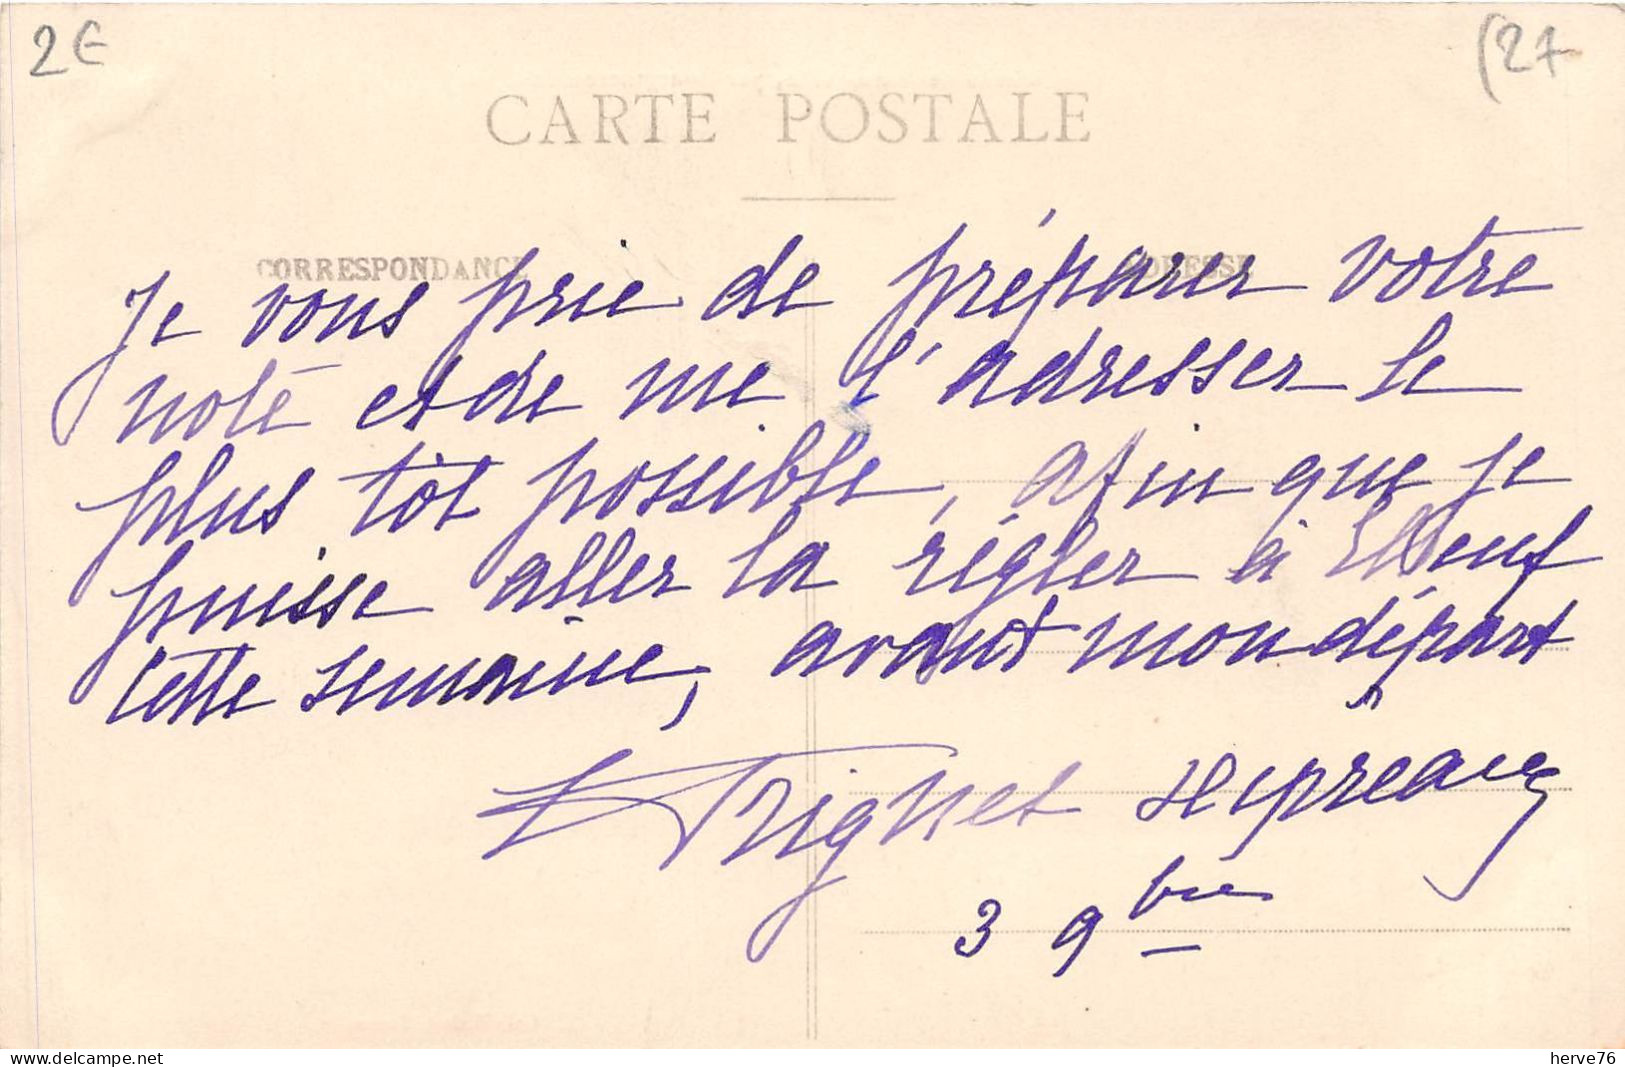 2€
(27
CARTE POSTALE
CORRESPONDANCE
ADRESSE
Je vous prie de préparer votre
note et de me l'adresser le
plus tôt possible, afin que je
puisse aller la régler à Elbeuf
cette semaine, avant mon départ
3 9bre
herve76